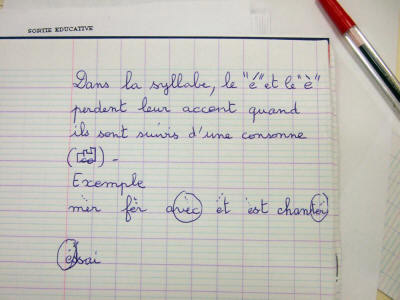 SORTIE EDUCATIVE
Dans la syllabe, le "é" et le "è"
perdent leur accent quand
ils sont suivis d'une consonne
( ) -
Exemple
mèr fèr avèc èt èst chantér
èssai